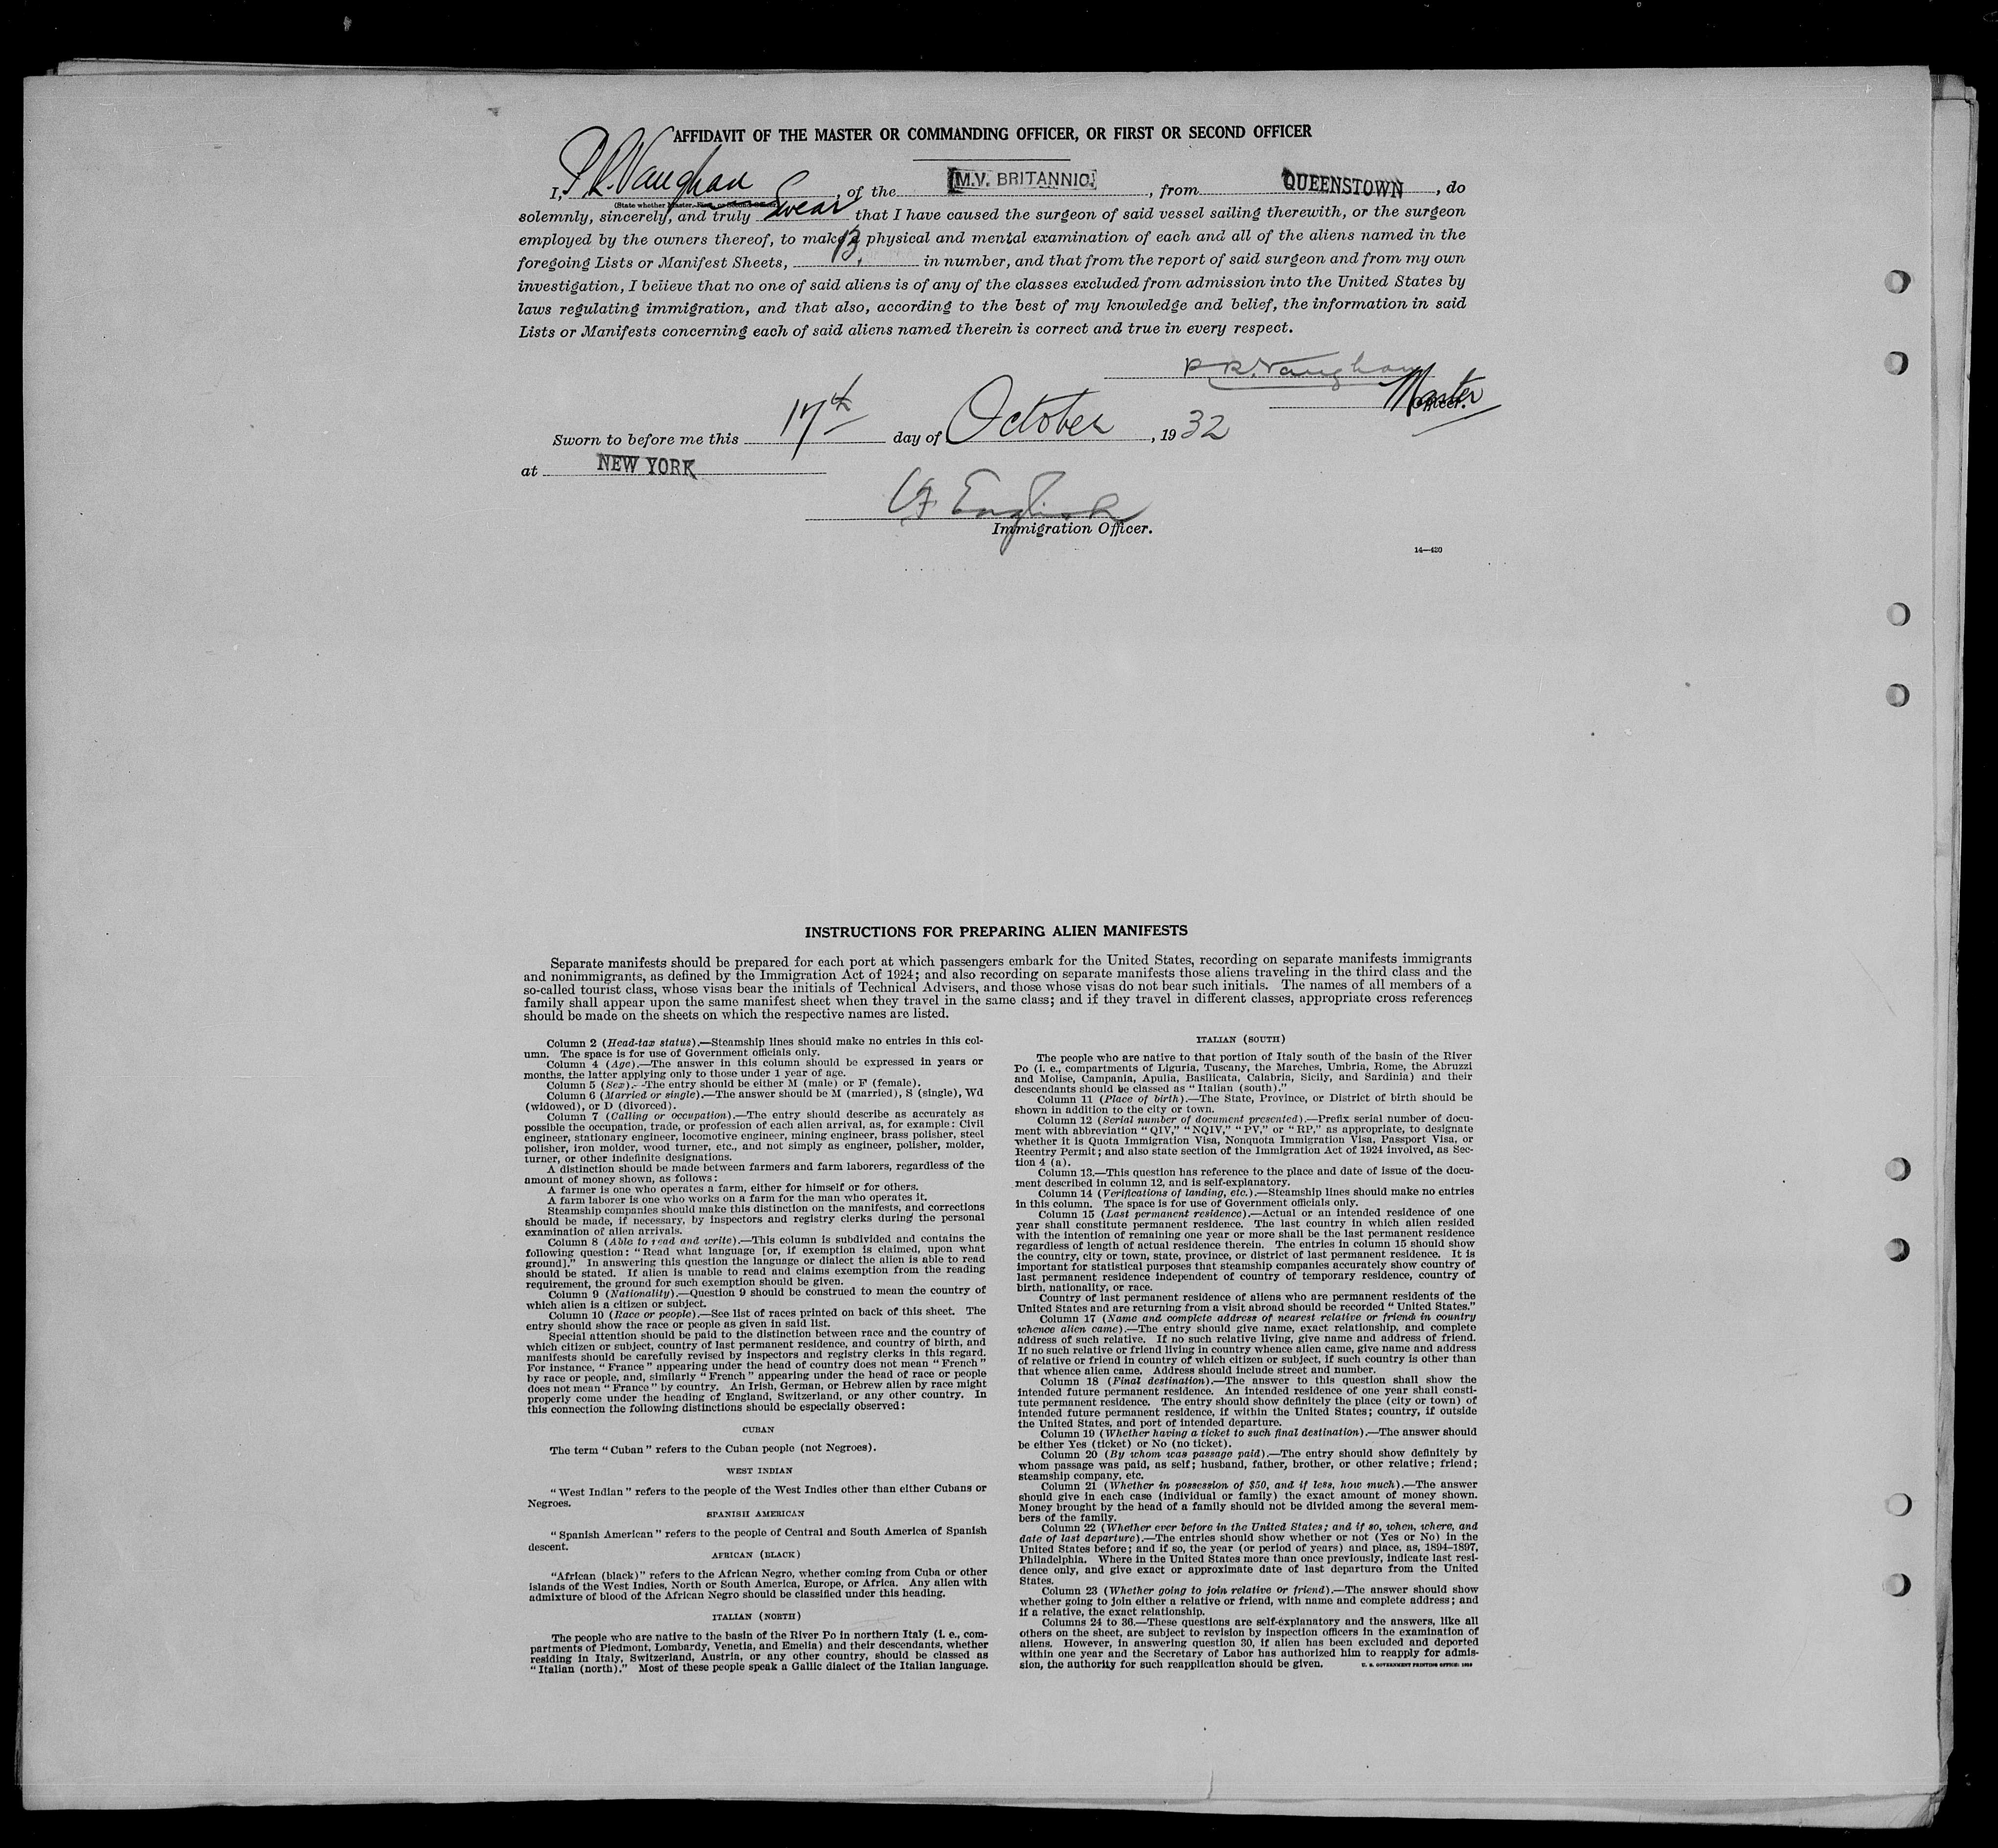 AFFIDAVIT OF THE MASTER OR COMMANDING OFFICER, OR FIRST OR SECOND OFFICER
I, P R Vaughan, of the M.V. BRITANNIC, from QUEENSTOWN, do
(State whether Master, First, or Second Officer)
solemnly, sincerely, and truly Swear that I have caused the surgeon of said vessel sailing therewith, or the surgeon
employed by the owners thereof, to make a physical and mental examination of each and all of the aliens named in the
foregoing Lists or Manifest Sheets, 13, in number, and that from the report of said surgeon and from my own
investigation, I believe that no one of said aliens is of any of the classes excluded from admission into the United States by
laws regulating immigration, and that also, according to the best of my knowledge and belief, the information in said
Lists or Manifests concerning each of said aliens named therein is correct and true in every respect.
P R. Vaughan
Master
Officer.
Sworn to before me this 17th day of October, 1932
at NEW YORK
English
Immigration Officer.
14—430
INSTRUCTIONS FOR PREPARING ALIEN MANIFESTS
Separate manifests should be prepared for each port at which passengers embark for the United States, recording on separate manifests immigrants
and nonimmigrants, as defined by the Immigration Act of 1924; and also recording on separate manifests those aliens traveling in the third class and the
so-called tourist class, whose visas bear the initials of Technical Advisers, and those whose visas do not bear such initials. The names of all members of a
family shall appear upon the same manifest sheet when they travel in the same class; and if they travel in different classes, appropriate cross references
should be made on the sheets on which the respective names are listed.
Column 2 (Head-tax status).—Steamship lines should make no entries in this col-
umn. The space is for use of Government officials only.
Column 4 (Age).—The answer in this column should be expressed in years or
months, the latter applying only to those under 1 year of age.
Column 5 (Sex).—The entry should be either M (male) or F (female).
Column 6 (Married or single).—The answer should be M (married), S (single), Wd
(widowed), or D (divorced).
Column 7 (Calling or occupation).—The entry should describe as accurately as
possible the occupation, trade, or profession of each alien arrival, as, for example: Civil
engineer, stationary engineer, locomotive engineer, mining engineer, brass polisher, steel
polisher, iron molder, wood turner, etc., and not simply as engineer, polisher, molder,
turner, or other indefinite designations.
A distinction should be made between farmers and farm laborers, regardless of the
amount of money shown, as follows:
A farmer is one who operates a farm, either for himself or for others.
A farm laborer is one who works on a farm for the man who operates it.
Steamship companies should make this distinction on the manifests, and corrections
should be made, if necessary, by inspectors and registry clerks during the personal
examination of alien arrivals.
Column 8 (Able to read and write).—This column is subdivided and contains the
following question: "Read what language [or, if exemption is claimed, upon what
ground]." In answering this question the language or dialect the alien is able to read
should be stated. If alien is unable to read and claims exemption from the reading
requirement, the ground for such exemption should be given.
Column 9 (Nationality).—Question 9 should be construed to mean the country of
which alien is a citizen or subject.
Column 10 (Race or people).—See list of races printed on back of this sheet. The
entry should show the race or people as given in said list.
Special attention should be paid to the distinction between race and the country of
which citizen or subject, country of last permanent residence, and country of birth, and
manifests should be carefully revised by inspectors and registry clerks in this regard.
For instance, "France" appearing under the head of country does not mean "French"
by race or people, and, similarly "French" appearing under the head of race or people
does not mean "France" by country. An Irish, German, or Hebrew alien by race might
properly come under the heading of England, Switzerland, or any other country. In
this connection the following distinctions should be especially observed:
CUBAN
The term "Cuban" refers to the Cuban people (not Negroes).
WEST INDIAN
"West Indian" refers to the people of the West Indies other than either Cubans or
Negroes.
SPANISH AMERICAN
"Spanish American" refers to the people of Central and South America of Spanish
descent.
AFRICAN (BLACK)
"African (black)" refers to the African Negro, whether coming from Cuba or other
islands of the West Indies, North or South America, Europe, or Africa. Any alien with
admixture of blood of the African Negro should be classified under this heading.
ITALIAN (NORTH)
The people who are native to the basin of the River Po in northern Italy (i. e., com-
partments of Piedmont, Lombardy, Venetia, and Emelia) and their descendants, whether
residing in Italy, Switzerland, Austria, or any other country, should be classed as
"Italian (north)." Most of these people speak a Gallic dialect of the Italian language.
ITALIAN (SOUTH)
The people who are native to that portion of Italy south of the basin of the River
Po (i. e., compartments of Liguria, Tuscany, the Marches, Umbria, Rome, the Abruzzi
and Molise, Campania, Apulia, Basilicata, Calabria, Sicily, and Sardinia) and their
descendants should be classed as "Italian (south)."
Column 11 (Place of birth).—The State, Province, or District of birth should be
shown in addition to the city or town.
Column 12 (Serial number of document presented).—Prefix serial number of docu-
ment with abbreviation "QIV," "NQIV," "PV," or "RP," as appropriate, to designate
whether it is Quota Immigration Visa, Nonquota Immigration Visa, Passport Visa, or
Reentry Permit; and also state section of the Immigration Act of 1924 involved, as Sec-
tion 4 (a).
Column 13.—This question has reference to the place and date of issue of the docu-
ment described in column 12, and is self-explanatory.
Column 14 (Verifications of landing, etc.).—Steamship lines should make no entries
in this column. The space is for use of Government officials only.
Column 15 (Last permanent residence).—Actual or an intended residence of one
year shall constitute permanent residence. The last country in which alien resided
with the intention of remaining one year or more shall be the last permanent residence
regardless of length of actual residence therein. The entries in column 15 should show
the country, city or town, state, province, or district of last permanent residence. It is
important for statistical purposes that steamship companies accurately show country of
last permanent residence independent of country of temporary residence, country of
birth, nationality, or race.
Country of last permanent residence of aliens who are permanent residents of the
United States and are returning from a visit abroad should be recorded "United States."
Column 17 (Name and complete address of nearest relative or friend in country
whence alien came).—The entry should give name, exact relationship, and complete
address of such relative. If no such relative living, give name and address of friend.
If no such relative or friend living in country whence alien came, give name and address
of relative or friend in country of which citizen or subject, if such country is other than
that whence alien came. Address should include street and number.
Column 18 (Final destination).—The answer to this question shall show the
intended future permanent residence. An intended residence of one year shall consti-
tute permanent residence. The entry should show definitely the place (city or town) of
intended future permanent residence, if within the United States; country, if outside
the United States, and port of intended departure.
Column 19 (Whether having a ticket to such final destination).—The answer should
be either Yes (ticket) or No (no ticket).
Column 20 (By whom was passage paid).—The entry should show definitely by
whom passage was paid, as self; husband, father, brother, or other relative; friend;
steamship company, etc.
Column 21 (Whether in possession of $50, and if less, how much).—The answer
should give in each case (individual or family) the exact amount of money shown.
Money brought by the head of a family should not be divided among the several mem-
bers of the family.
Column 22 (Whether ever before in the United States; and if so, when, where, and
date of last departure).—The entries should show whether or not (Yes or No) in the
United States before; and if so, the year (or period of years) and place, as, 1894–1897,
Philadelphia. Where in the United States more than once previously, indicate last resi-
dence only, and give exact or approximate date of last departure from the United
States.
Column 23 (Whether going to join relative or friend).—The answer should show
whether going to join either a relative or friend, with name and complete address; and
if a relative, the exact relationship.
Columns 24 to 36.—These questions are self-explanatory and the answers, like all
others on the sheet, are subject to revision by inspection officers in the examination of
aliens. However, in answering question 30, if alien has been excluded and deported
within one year and the Secretary of Labor has authorized him to reapply for admis-
sion, the authority for such reapplication should be given.
U. S. GOVERNMENT PRINTING OFFICE: